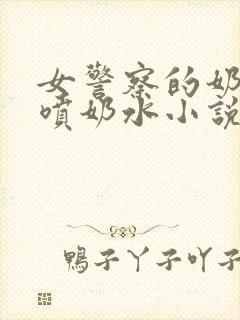 女警察的奶
噴奶水小說
鴨子丫子吖子